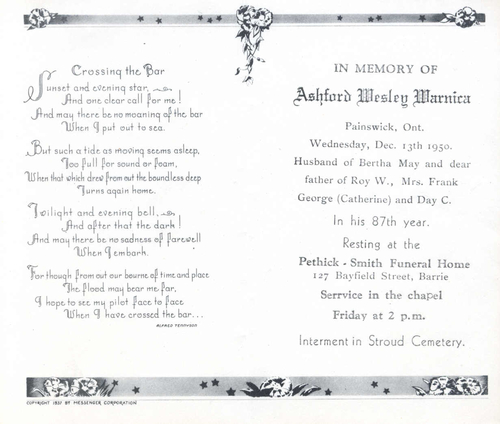 Crossing the Bar
Sunset and evening star,
And one clear call for me!
And may there be no moaning of the bar
When I put out to sea.
But such a tide as moving seems asleep,
Too full for sound or foam,
When that which drew from out the boundless deep
Turns again home.
Twilight and evening bell,
And after that the dark!
And may there be no sadness of farewell
When I embark.
For though from out our bourne of time and place
The flood may bear me far,
I hope to see my pilot face to face
When I have crossed the bar...
ALFRED TENNYSON
COPYRIGHT 1931 BY MESSENGER CORPORATION
IN MEMORY OF
Ashford Wesley Warnica
Painswick, Ont.
Wednesday, Dec. 13th 1950.
Husband of Bertha May and dear
father of Roy W., Mrs. Frank
George (Catherine) and Day C.
In his 87th year.
Resting at the
Pethick - Smith Funeral Home
127 Bayfield Street, Barrie
Serrvice in the chapel
Friday at 2 p.m.
Interment in Stroud Cemetery.